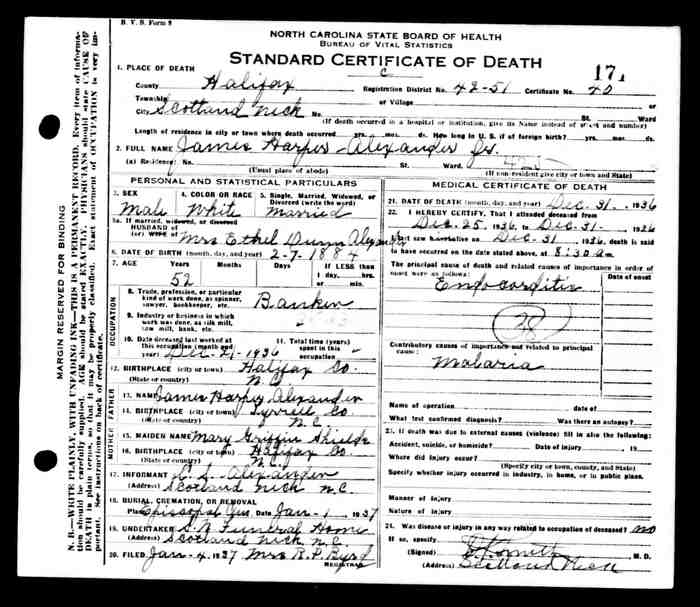 B. V. S. Form 8
NORTH CAROLINA STATE BOARD OF HEALTH
BUREAU OF VITAL STATISTICS
STANDARD CERTIFICATE OF DEATH
C
171
1. PLACE OF DEATH
County Halifax Registration District No. 42-51 Certificate No. 40
Township or Village or
City Scotland Neck No. St. Ward
(If death occurred in a hospital or institution, give its Name instead of street and number)
Length of residence in city or town where death occurred yrs. mos. ds. How long in U. S. if of foreign birth? yrs. mos.
2. FULL NAME James Harper Alexander Jr.
(a) Residency: No. St. Ward.
(Usual place of abode) (If non-resident give city or town and State)
PERSONAL AND STATISTICAL PARTICULARS
3. SEX 4. COLOR OR RACE 5. Single, Married, Widowed, or Divorced (write the word)
Male White Married
5a. If married, widowed, or divorced
HUSBAND of
(or) WIFE of Mrs Ethel Dunn Alexander
6. DATE OF BIRTH (month, day, and year) 2-7-1884
7. AGE Years Months Days If LESS than
1 day, hrs.
52 or min.
OCCUPATION
8. Trade, profession, or particular
kind of work done, as spinner,
sawyer, bookkeeper, etc. Banker
9. Industry or business in which
work was done, as silk mill,
saw mill, bank, etc.
10. Date deceased last worked at
this occupation (month and
year) Dec-21-1936
11. Total time (years)
spent in this
occupation
12. BIRTHPLACE (city or town) Halifax Co.
(State or country) N.C.
FATHER
13. NAME James Harper Alexander
14. BIRTHPLACE (city or town) Tyrrell Co.
(State or country) N.C.
MOTHER
15. MAIDEN NAME Mary Griffin Shields
16. BIRTHPLACE (city or town) Halifax Co.
(State or country) N.C.
17. INFORMANT Alexander
(Address) Scotland Neck N.C.
18. BURIAL, CREMATION, OR REMOVAL
Place Episcopal Date Jan-1 1937
19. UNDERTAKER S.N. Funeral Home
(Address) Scotland Neck N.C.
20. FILED Jan-4 1937 Mrs R.P. Byrd
REGISTRAR
MEDICAL CERTIFICATE OF DEATH
21. DATE OF DEATH (month, day, and year) Dec-31-1936
22. I HEREBY CERTIFY, That I attended deceased from
Dec. 25 1936, to Dec. 31 1936
I last saw h alive on Dec. 31 1936, death is said
to have occurred on the date stated above, at 8:30 a m
The principal cause of death and related causes of importance in order of
onset were as follows: Date of onset
Endocarditis
Contributory causes of importance not related to principal
cause:
Malaria
Name of operation date of
What test confirmed diagnosis? Was there an autopsy?
23. If death was due to external causes (violence) fill in also the following:
Accident, suicide, or homicide? Date of injury , 19
Where did injury occur?
(Specify city or town, county, and State)
Specify whether injury occurred in industry, in home, or in public place.
Manner of injury
Nature of injury
24. Was disease or injury in any way related to occupation of deceased? no
If so, specify
(Signed) Smith M. D.
(Address) Scotland Neck
MARGIN RESERVED FOR BINDING
N. B.—WRITE PLAINLY, WITH UNFADING INK—THIS IS A PERMANENT RECORD. Every item of information should be carefully supplied. AGE should be stated EXACTLY. PHYSICIANS should state CAUSE OF DEATH in plain terms, so that it may be properly classified. Exact statement of OCCUPATION is very important. See instructions on back of certificate.